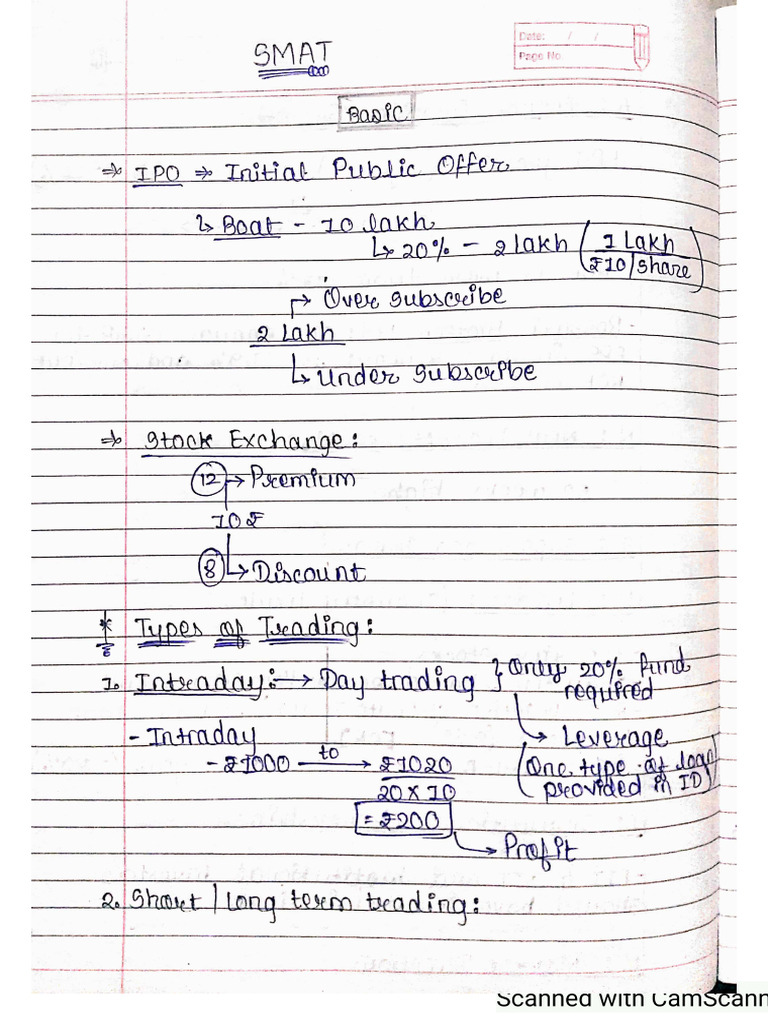 SMAT
Date: / /
Page No.
Basic
⇒ IPO ⇒ Initial Public Offer
↳ Boat - 10 lakh
↳ 20% - 2 lakh (1 Lakh
₹10/share)
↱ Over subscribe
2 Lakh
↳ Under subscribe
⇒ Stock Exchange:
12 → Premium
10₹
8 ↳ Discount
* Types of Trading:
1. Intraday:→ Day trading } Only 20% fund
required
↳ Leverage
- Intraday
(One type of loan
provided in ID)
- ₹1000 to → ₹1020
20 X 10
= ₹200
↳ Profit
2. Short / long term trading:
Scanned with CamScann